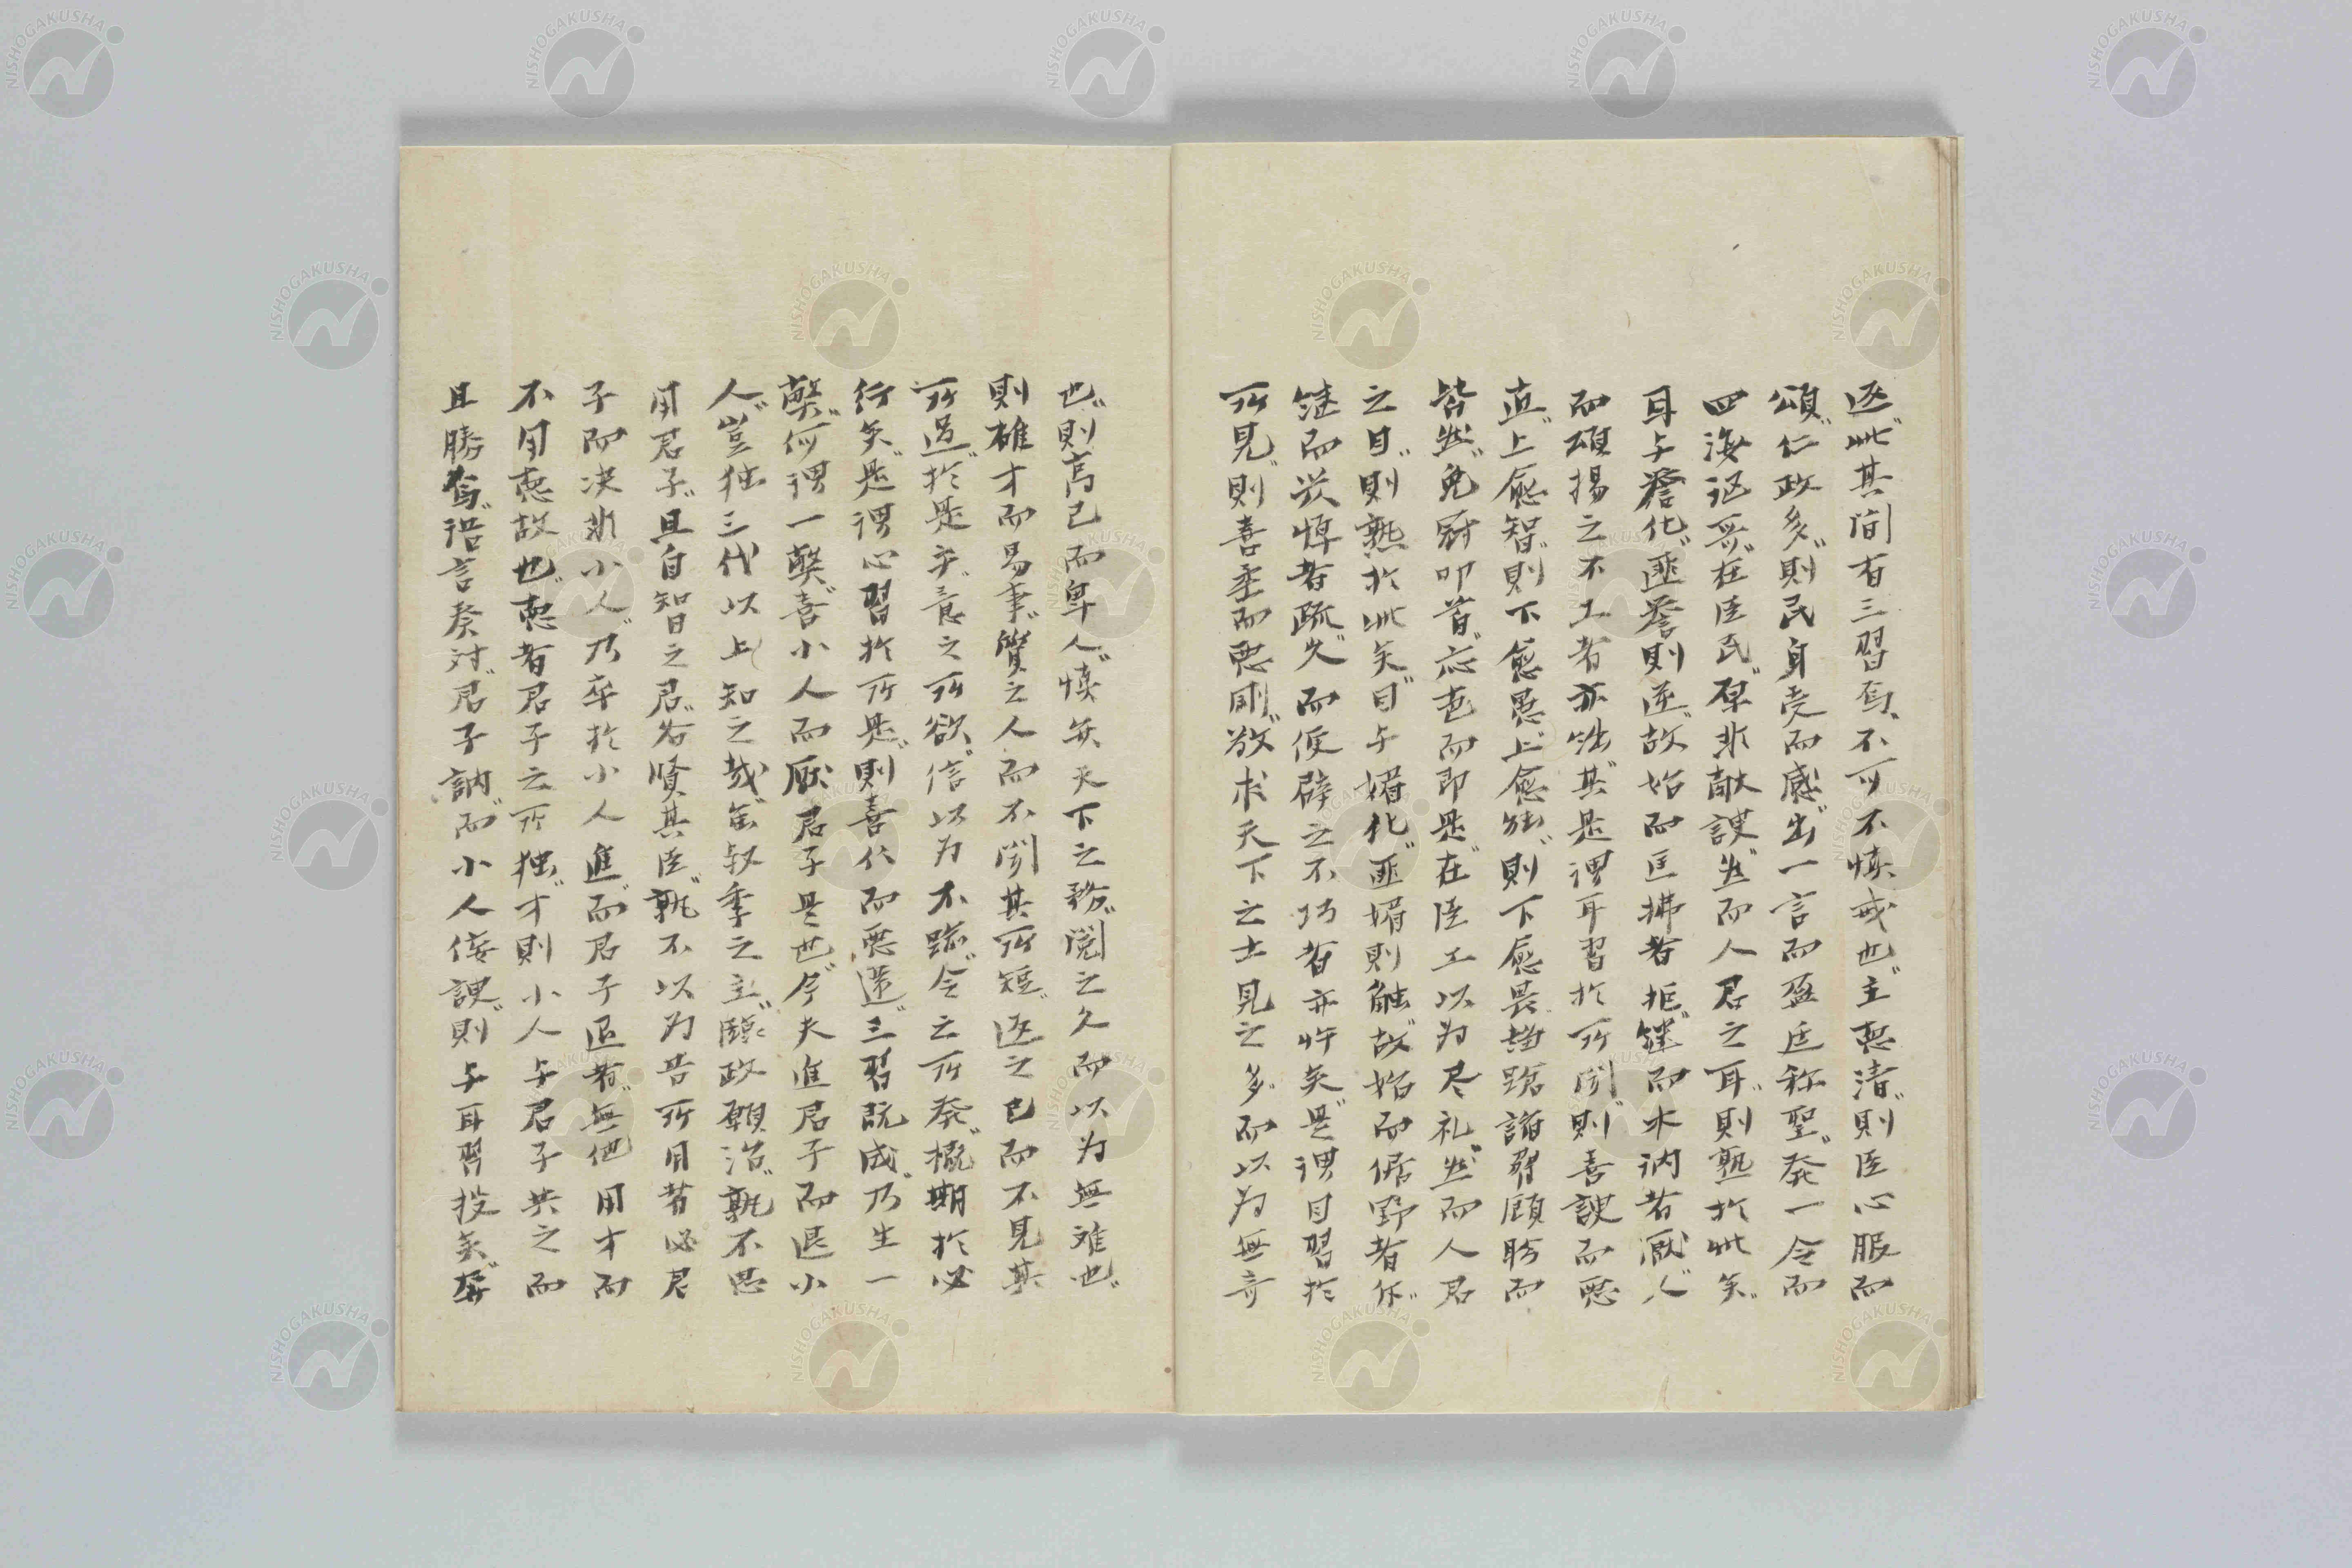 返此其间有三習焉不可不慎戒也主惪清則臣心服而
頌仁政多則民身受而感出一言而盈廷称聖発一令而
四海謳哥在臣民原非献諛然而人君之耳則熟於此矣
耳与誉化匪誉則逆故始而匡拂者拒継而木訥者厭久
而頌揚之不工者亦絀其是謂耳習於所闻則喜諛而悪
直上愈智則下愈愚上愈能則下愈畏趨蹌諂脅顧盼而
皆然免冠叩首应声而即是在臣工以为尽礼然而人君
之目則熟於此矣目与媚化匪媚則触故始而倨野者斥
継而厳憚者疏久而便辟之不巧者亦忤矣是謂目習於
所見則喜柔而悪剛敬求天下之士見之多而以为無奇
也則高己而卑人慎弁天下之務閲之久而以为無难也
則雄才而易事質之人而不闻其所短返之己而不見其
所过於是乎意之所欲信以为不踰令之所発概期於必
行矣是謂心習於所是則喜从而悪違三習既成乃生一
弊何謂一弊喜小人而厭君子是也今夫進君子而退小
人豈独三代以上知之哉虽叔季之主臨政願治孰不思
用君子且自智之君各賢其臣孰不以为吾所用者必君
子而决非小人乃卒於小人進而君子退者無他用才而
不用惪故也惪者君子之所独才則小人与君子共之而
且勝焉语言奏对君子訥而小人佞諛則与耳習投矣奔